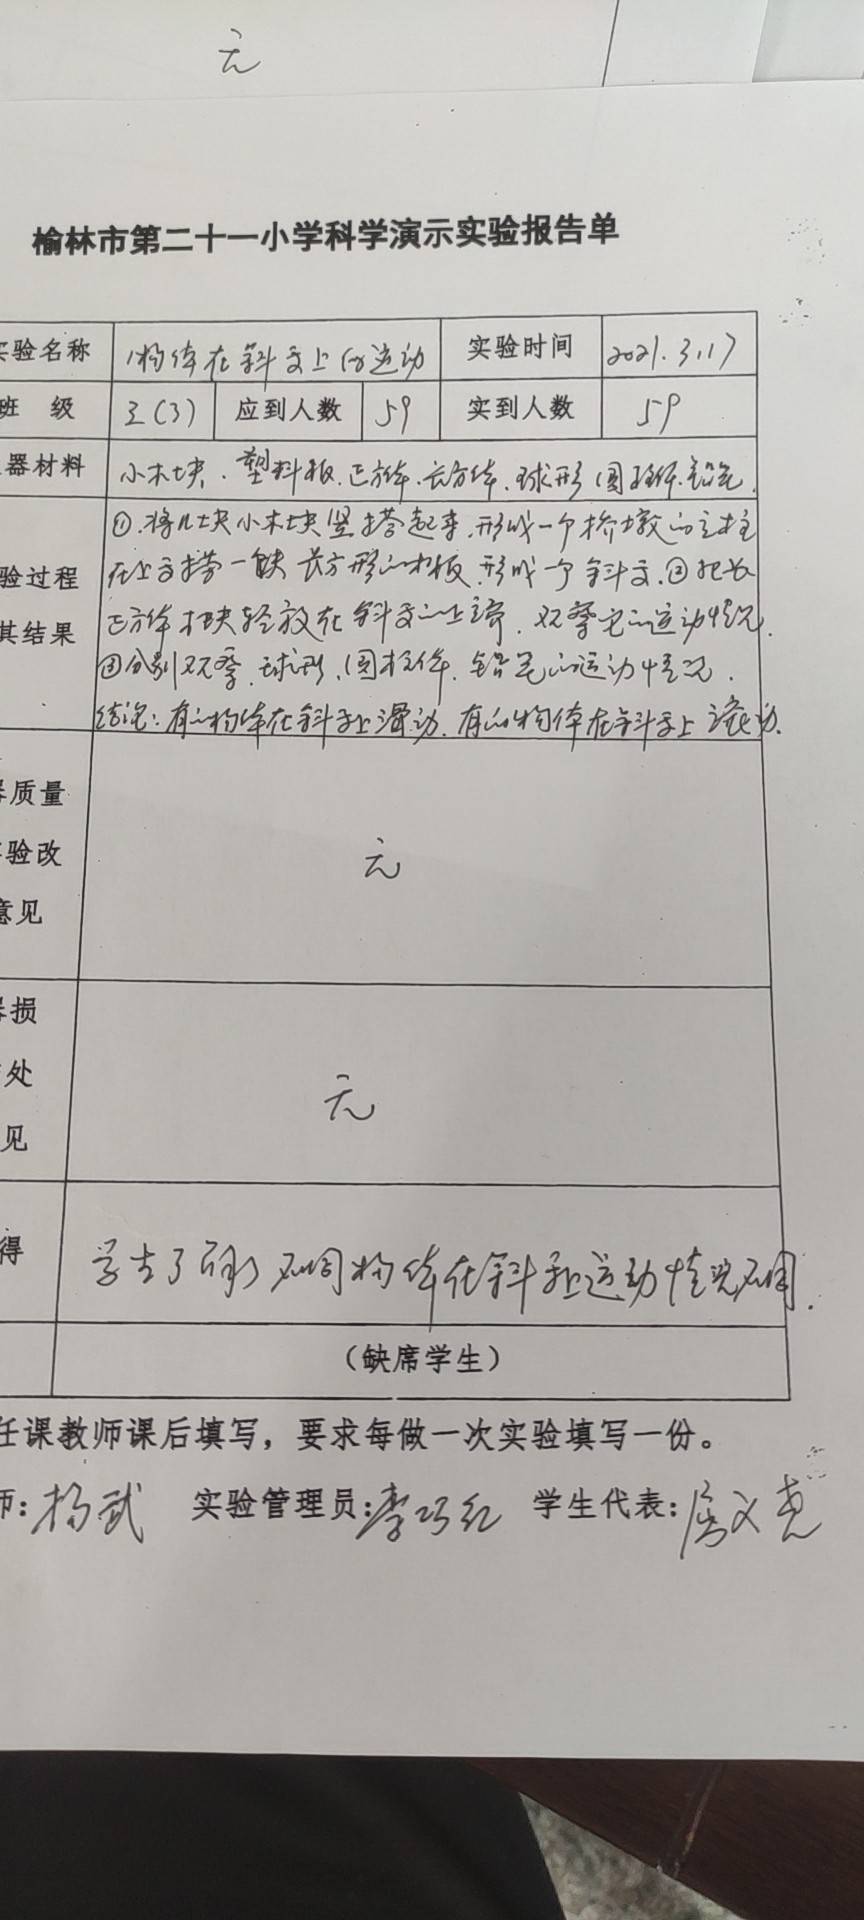 无
榆林市第二十一小学科学演示实验报告单
实验名称 物体在斜面上的运动 实验时间 2021.3.17
班 级 三(3) 应到人数 59 实到人数 59
器材料 小木块、塑料板、正方体、长方体、球形、圆柱体、铅笔.
①.将几块小木块竖搭起来,形成一个桥墩的立柱
验过程 在上面搭一块长方形的木板,形成一个斜面.②把长
其结果 正方体木块轻放在斜面的上端,观察它的运动情况.
③分别观察、球形、圆柱体、铅笔的运动情况.
结论:有的物体在斜面上滑动.有的物体在斜面上滚动.
质量
验改 无
意见
损
处 无
见
得 不同物体在斜面上运动情况不同.
(缺席学生)
任课教师课后填写，要求每做一次实验填写一份。
师:杨武 实验管理员:李巧红 学生代表: